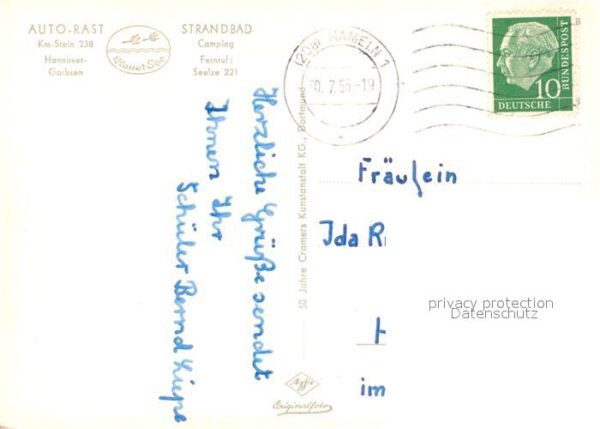 AUTO-RAST
Km-Stein 238
Hannover-
Garbsen
Blauer See
STRANDBAD
Camping
Fernruf:
Seelze 221
(20a) HAMELN 1
7.56-19
10
DEUTSCHE
BUNDESPOST
Herzliche Grüße sendet
Ihnen Ihr
Schüler Bernd Liepe
50 Jahre Cramers Kunstanstalt KG., Dortmund
Fräulein
Ida R
H
im
privacy protection
Datenschutz
Agfa
Originalfoto